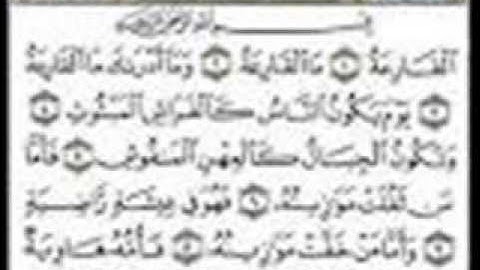 بسم الله الرحمن الرحيم
القارعة ١ ما القارعة ٢ وما أدراك ما القارعة
٣ يوم يكون الناس كالفراش المبثوث ٤
وتكون الجبال كالعهن المنفوش ٥ فأما
من ثقلت موازينه ٦ فهو في عيشة راضية
٧ وأما من خفت موازينه ٨ فأمه هاوية